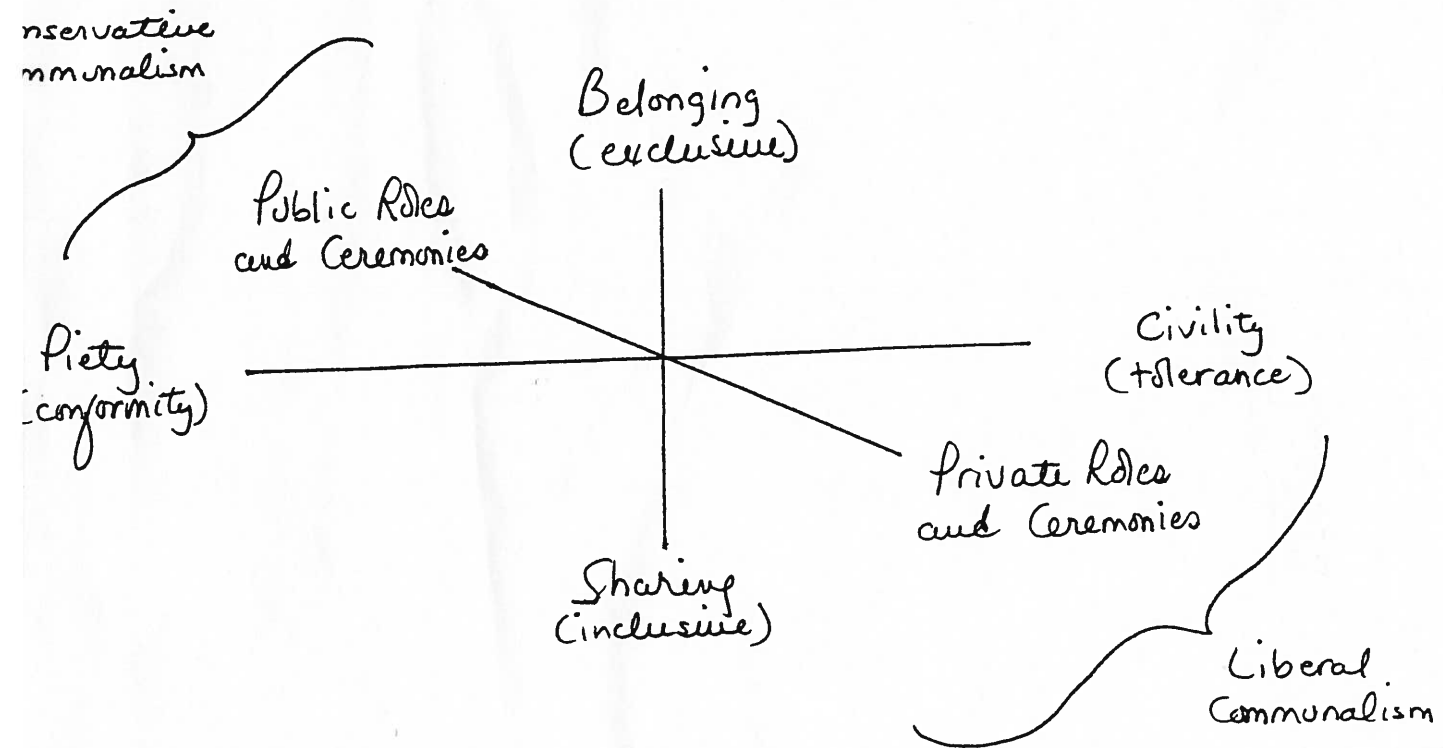 nservative
mmunalism
Belonging
(exclusive)
Public Roles
and Ceremonies
Piety
(conformity)
Civility
(tolerance)
Private Roles
and Ceremonies
Sharing
(inclusive)
Liberal
Communalism